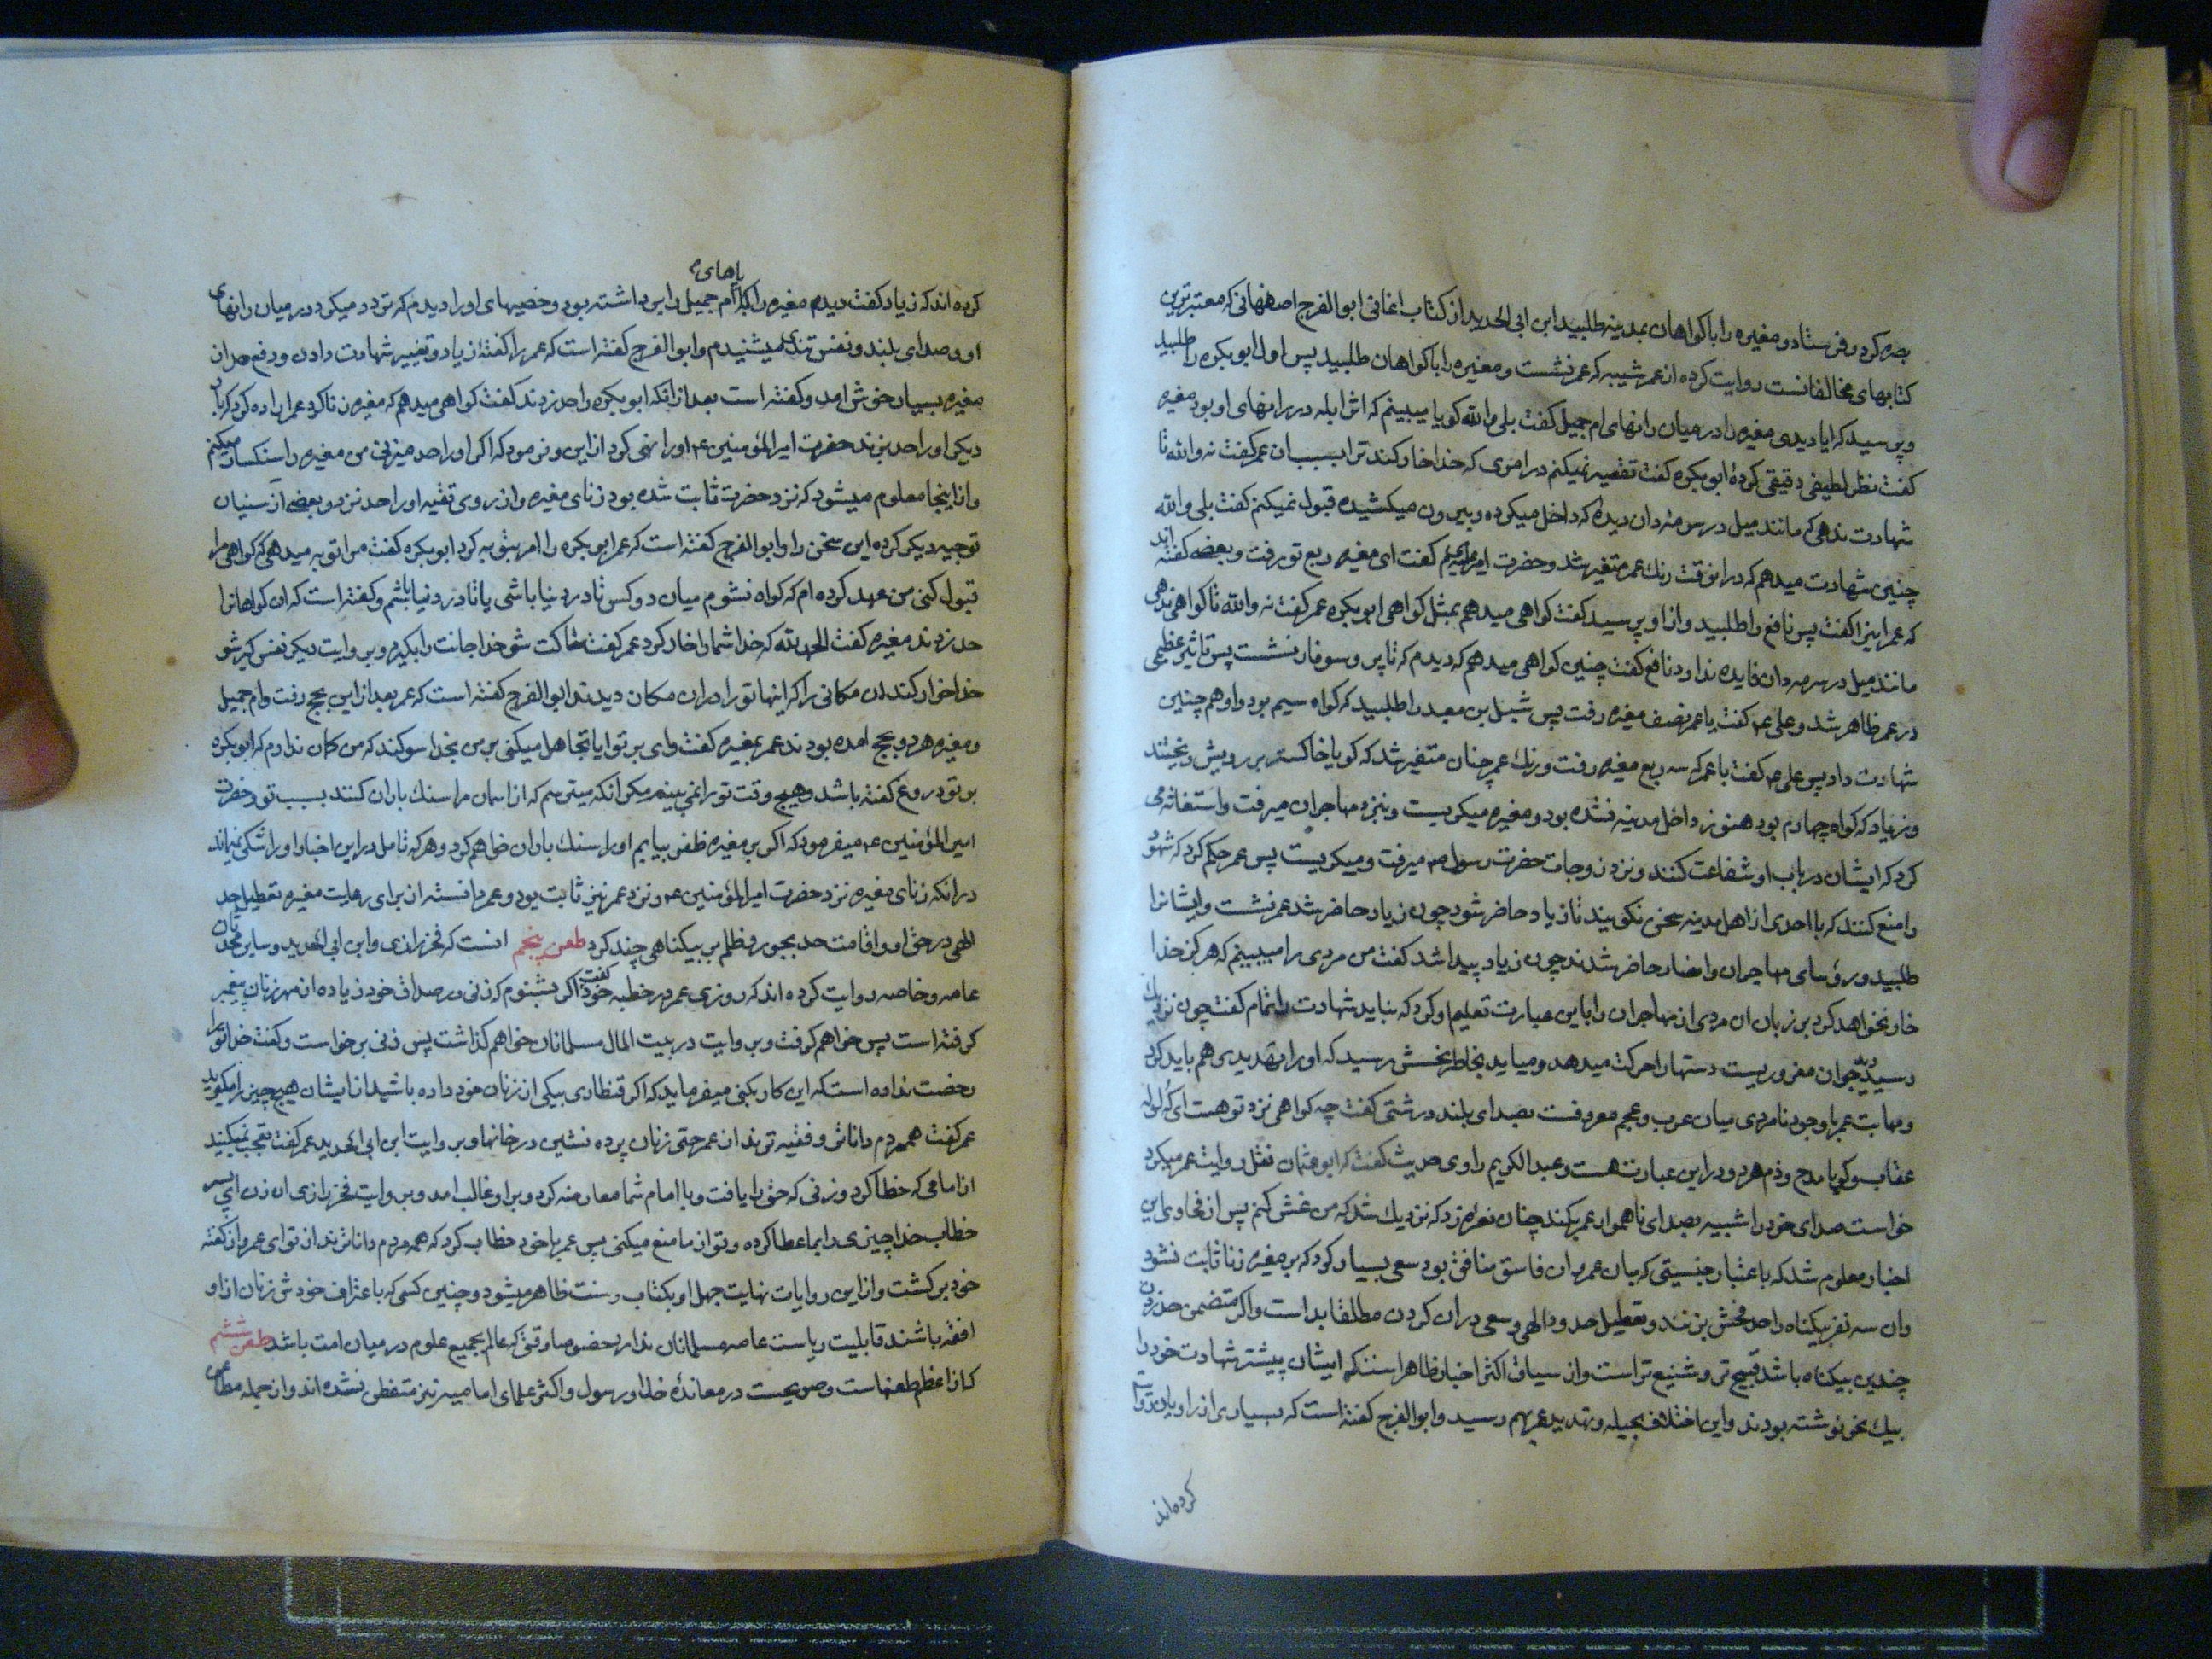 بصره کرد و فرستاد و مغیره را با کواهان بمدینه طلبید ابن ابی الحدید از کتاب اغانی ابو الفرج اصفهانی که معتبرترین
کتابهای مخالفانست روایت کرده از عمر شیبه که عمر نشست و مغیره را با کواهان طلبید پس اول ابو بکره را طلبید
و پرسید که ایا دیدی مغیره را در میان رانهای ام جمیل کفت بلی والله کویا میبینم که اثر ابله در رانهای او بود مغیره
کفت نظر لطیفی دقیقی کردهٔ ابو بکره کفت تقصیر نمیکنم در امری که خدا خار کند ترا بسبب ان عمر کفت نه والله تا
شهادت ندهی که مانند میل در سرمه دان دیدهٔ که داخل میکرده و بیرون میکشیده قبول نمیکنم کفت بلی والله
چنین شهادت میدهم که در انوقت رنك عمر متغیر شد و حضرت امیر ع کفت ای مغیره ربع تو رفت و بعضی کفته اند
که عمر اینرا کفت پس نافع را طلبید و از او پرسید کفت کواهی میدهم بمثل کواهی ابو بکره عمر کفت نه والله تا کواهی ندهی
مانند میل در سرمه دان فایده ندارد نافع کفت چنین کواهی میدهم که دیدم که تا پر و سوفار نشست پس تاثیر عظیمی
در عمر ظاهر شد و علی ع کفت یا عمر نصف مغیره رفت پس شبل بن معبد را طلبید که کواه سیم بود و او هم چنین
شهادت داد پس علی ع کفت با عمر که سه ربع مغیره رفت و رنك عمر چنان متغیر شد که کویا خاکستر بر رویش ریختند
و زیاد که کواه چهارم بود هنوز داخل مدینه نشده بود و مغیره میکریست و بنزد مهاجران میرفت و استغاثه می
کرد که ایشان در باب او شفاعت کنند و نزد زوجات حضرت رسول ص میرفت و میکریست پس عمر حکم کرد که شهود
را منع کنند که با احدی از اهل مدینه سخن نکویند تا زیاد حاضر شود چون زیاد حاضر شد عمر نشست و ایشانرا
طلبید و رؤسای مهاجران و انصار حاضر شدند چون زیاد پیدا شد کفت من مردی را میبینم که هرکز خدا
خار نخواهد کرد بر زبان ان مردی از مهاجران را باین عبارت تعلیم او کرد که نباید شهادت را تمام کفت چون نزدیك
رسید دید جوان مغروریست دستها را حرکت میدهد و میاید بخاطر نحسش رسید که او را تهدیدی هم باید کرد
و مهابت عمر با وجود نامردی میان عرب و عجم معروفست بصدای بلند درشتی کفت چه کواهی نزد تو هست ای کُه لوله
عقاب و کویا مدح و ذم هر دو در این عبارت هست و عبد الکریم راوی حدیث کفت که ابو عثمان نقل روایت عمر میکرد
خواست صدای خود را شبیه بصدای ناهموار عمر بکند چنان نعرهٔ زد که نزدیك شد که من غش کنم پس از فحاوی این
اخبار معلوم شد که باعتبار جنسیتی که میان عمر و ان فاسق منافق بود سعی بسیار کرد که بر مغیره زنا ثابت نشود
و ان سه نفر بیکناه را حد فحش بزنند و تعطیل حدود الهی و سعی در ان کردن مطلقا بد است و اکر متضمن حد زدن
چندین بیکناه باشد قبیح تر و شنیع تر است و از سیاق اکثر اخبار ظاهر است که ایشان پیشتر شهادت خود را
بیك نحو نوشته بودند و این اختلاف بحیله و تهدید عمر بهم رسید و ابو الفرج کفته است که بسیاری از راویان روایت
کرده اند
پاهای
کرده اند که زیاد کفت دیدم مغیره را که ام جمیل را برداشته بود و خصیهای او را دیدم که تردد میکرد در میان رانهای
او و صدای بلند و نفس تندی میشنیدم و ابو الفرج کفته است که عمر را کفتهٔ زیاد و تغییر شهادت دادن و دفع حد از
مغیره بسیار خوش امد و کفته است بعد از انکه ابو بکره را حد زدند کفت کواهی میدهم که مغیره زنا کرد عمر اراده کرد که بار
دیکر او را حد بزند حضرت امیر المؤمنین ع او را نهی کرد از این و فرمود که اکر او را حد میزنی من مغیره را سنکسار میکنم
و از اینجا معلوم میشود که نزد حضرت ثابت شده بود زنای مغیره و از روی تقیه او را حد نزد و بعضی از سنیان
توجیه دیکر کرده این سخن را و ابو الفرج کفته است که عمر ابو بکره را امر بتوبه کرد ابو بکره کفت مرا توبه میدهی که کواهی مرا
قبول کنی من عهد کرده ام که کواه نشوم میان دو کس تا در دنیا باشی یا تا در دنیا باشم و کفته است که ان کواهانرا
حد زدند مغیره کفت الحمد لله که خدا شما را خار کرد عمر کفت ساکت شو خدا جانت را بکیرد و بروایت دیکر نفس کیر شو
خدا خوار کند ان مکانی را که اینها تو را در ان مکان دیدند ابو الفرج کفته است که عمر بعد از این بحج رفت و ام جمیل
و مغیره هر دو بحج امده بودند عمر بمغیره کفت وای بر تو ایا تجاهل میکنی بر من بخدا سوکند که من کمان ندارم که ابو بکره
بر تو دروغ کفته باشد و هیچ وقت تو را نمی بینم مکر انکه میترسم که از اسمان مرا سنك باران کنند بسبب تو و حضرت
امیر المؤمنین ع میفرمود که اکر بر مغیره ظفر بیابم او را سنك باران خواهم کرد و هر که تامل در این اخبار او را شکی نمیماند
در انکه زنای مغیره نزد حضرت امیر المؤمنین ع و نزد عمر نیز ثابت بود و عمر دانسته از برای رعایت مغیره تعطیل حد
الهی در حق او و اقامت حد بجور و ظلم بر بیکناهی چند کرد طعن پنجم انست که فخر رازی و ابن ابی الحدید و سایر محدثان
عامه و خاصه روایت کرده اند که روزی عمر در خطبه خود کفت اکر بشنوم که زنی در صداق خود زیاده از مهر زنان پیغمبر
کرفته است پس خواهم کرفت و بروایت در بیت المال مسلمانان خواهم کذاشت پس زنی برخواست و کفت خدا تو را
رخصت نداده است که این کار بکنی میفرماید که اکر قنطاری بیکی از زنان خود داده باشید از ایشان هیچ چیز را مکیرید
عمر کفت همه مردم داناتر و فقیه ترند از عمر حتی زنان پرده نشین در خانها و بروایت ابن ابی الحدید عمر کفت تعجب نمیکنید
از امامی که خطا کرد و زنی که حق را یافت و با امام شما معارضه کرد و بر او غالب امد و بروایت فخر رازی ان زن ای پسر
خطاب خدا چیزی را بما عطا کرده و تو از ما منع میکنی پس عمر با خود خطاب کرد که همه مردم داناترند از تو ای عمر و از کفته
خود برکشت و از این روایات نهایت جهل او بکتاب و سنت ظاهر میشود و چنین کسی که باعتراف خودش زنان از او
افقه باشند قابلیت ریاست عامه مسلمانان ندارد خصوصا وقتی که عالم بجمیع علوم در میان امت باشد طعن ششم
که از اعظم طعنهاست و صریحست در معاندهٔ خدا و رسول و اکثر علمای امامیه نیز متفطن نشده اند و از جمله مطاعن